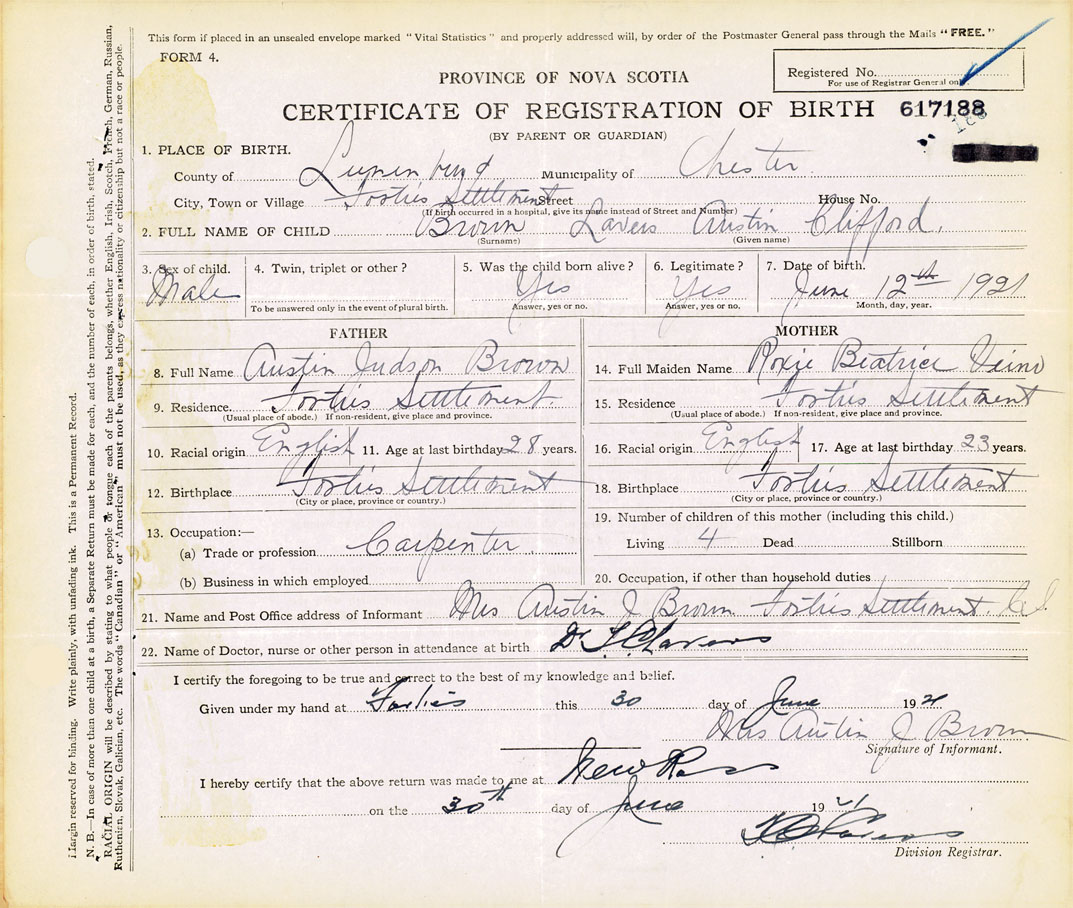 This form if placed in an unsealed envelope marked "Vital Statistics" and properly addressed will, by order of the Postmaster General pass through the Mails "FREE."
FORM 4.
Registered No.
For use of Registrar General only
PROVINCE OF NOVA SCOTIA
CERTIFICATE OF REGISTRATION OF BIRTH 617188
(BY PARENT OR GUARDIAN)
1. PLACE OF BIRTH.
County of Lunenburg Municipality of Chester
City, Town or Village Forties Settlement Street House No.
(If birth occurred in a hospital, give its name instead of Street and Number)
2. FULL NAME OF CHILD Brown Lavers Austin Clifford.
(Surname) (Given name)
3. Sex of child. 4. Twin, triplet or other? 5. Was the child born alive? 6. Legitimate? 7. Date of birth.
Male Yes Yes June 12th 1921
To be answered only in the event of plural birth. Answer, yes or no. Answer, yes or no. Month, day, year.
FATHER
8. Full Name Austin Judson Brown
9. Residence. Forties Settlement
(Usual place of abode.) If non-resident, give place and province.
10. Racial origin English 11. Age at last birthday 28 years.
12. Birthplace Forties Settlement
(City or place, province or country.)
13. Occupation:—
(a) Trade or profession Carpenter
(b) Business in which employed
MOTHER
14. Full Maiden Name Roxie Beatrice
15. Residence Forties Settlement
(Usual place of abode.) If non-resident, give place and province.
16. Racial origin English 17. Age at last birthday 23 years.
18. Birthplace Forties Settlement
(City or place, province or country.)
19. Number of children of this mother (including this child.)
Living 4 Dead Stillborn
20. Occupation, if other than household duties
21. Name and Post Office address of Informant Mrs Austin J Brown Forties Settlement.
22. Name of Doctor, nurse or other person in attendance at birth Dr Lavers
I certify the foregoing to be true and correct to the best of my knowledge and belief.
Given under my hand at Forties this 30 day of June 1921
Mrs Austin J Brown
Signature of Informant.
I hereby certify that the above return was made to me at New Ross
on the 30th day of June 1921
Lavers
Division Registrar.
Margin reserved for binding. Write plainly, with unfading ink. This is a Permanent Record.
N. B.—In case of more than one child at a birth, a Separate Return must be made for each, and the number of each, in order of birth, stated.
RACIAL ORIGIN will be described by stating to what people or tongue each of the parents belongs, whether English, Irish, Scotch, French, German, Russian,
Ruthenian, Slovak, Galician, etc. The words "Canadian" or "American" must not be used, as they express nationality or citizenship but not a race or people.